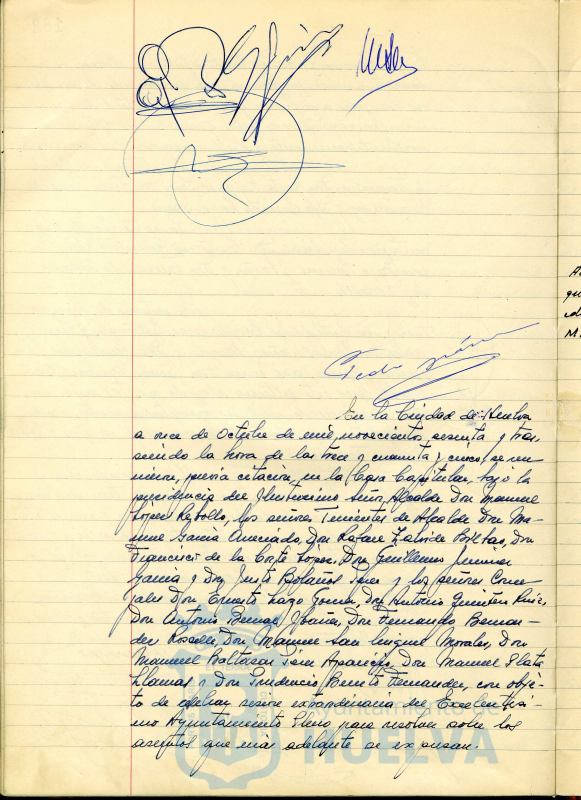 Pedro
En la Ciudad de Huelva
a once de Octubre de mil novecientos sesenta y tres,
siendo la hora de las trece y cuarenta y cinco, se reu-
nieron, previa citación, en la Casa Capitular, bajo la
presidencia del Ilustrísimo Señor Alcalde Don Manuel
López Rebollo, los señores Tenientes de Alcalde Don Ma-
nuel García Don Rafael Don
Francisco de la Corte López, Don Guillermo Jiménez
García y Don Justo Bolaños y los señores Conce-
jales Don Ernesto Lazo Don Antonio Ruiz,
Don Antonio Bernal Don Fernando Bernan-
dez Don Manuel San Miguel Morales, Don
Manuel Baltasar Aparicio, Don Manuel Plata
Llamas y Don Prudencio Benito Fernández, con obje-
to de celebrar sesión extraordinaria del Excelentísi-
mo Ayuntamiento Pleno para resolver sobre los
asuntos que más adelante se expresan.
Ayuntamiento de
HUELVA